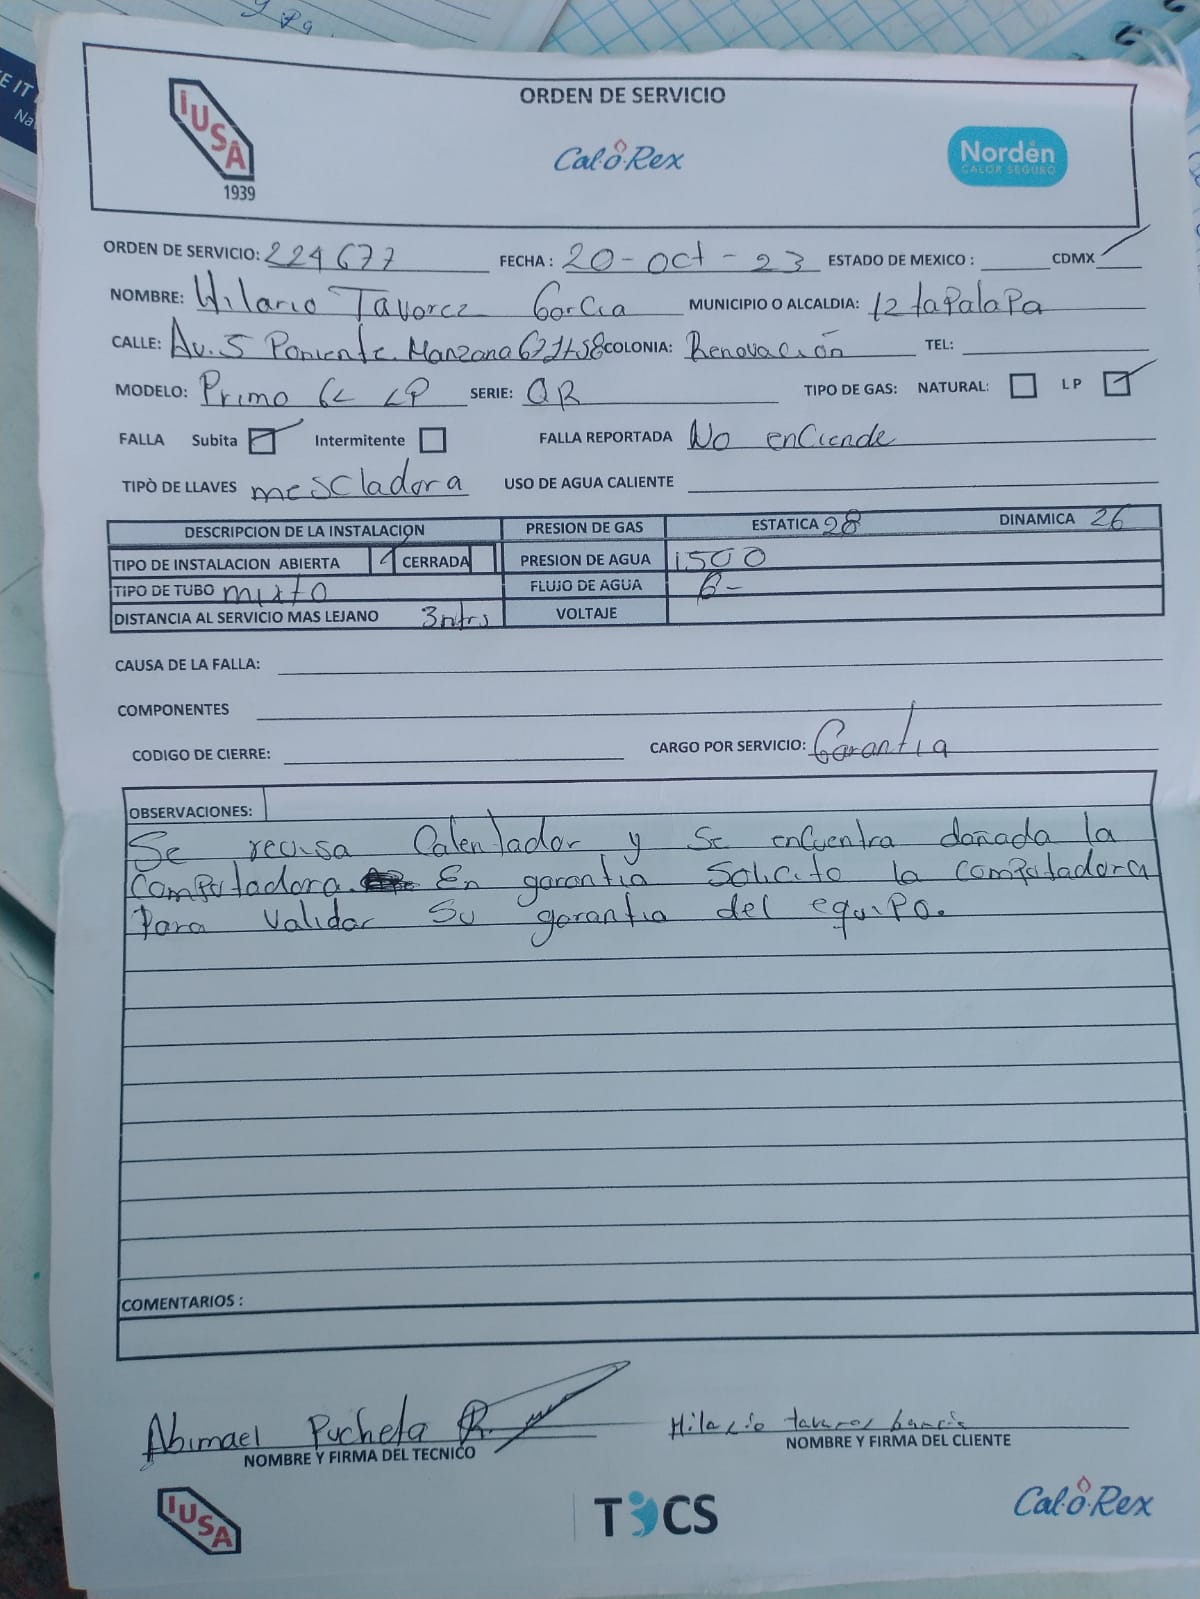 ORDEN DE SERVICIO
IUSA
1939
Cal-o-Rex
Norden
CALOR SEGURO
ORDEN DE SERVICIO: 224677 FECHA : 20-oct-23 ESTADO DE MEXICO : CDMX
NOMBRE: Hilario Tavorez Garcia MUNICIPIO O ALCALDIA: Iztapalapa
CALLE: Av. 5 Poniente. Manzana COLONIA: Renovación TEL:
MODELO: Primo 6L LP SERIE: QR TIPO DE GAS: NATURAL: LP
FALLA Subita Intermitente FALLA REPORTADA No enciende
TIPÒ DE LLAVES mescladora USO DE AGUA CALIENTE
DESCRIPCION DE LA INSTALACION PRESION DE GAS ESTATICA 28 DINAMICA 26
TIPO DE INSTALACION ABIERTA CERRADA PRESION DE AGUA 1500
TIPO DE TUBO mixto FLUJO DE AGUA 6-
DISTANCIA AL SERVICIO MAS LEJANO 3mtrs VOLTAJE
CAUSA DE LA FALLA:
COMPONENTES
CODIGO DE CIERRE: CARGO POR SERVICIO: Garantia
OBSERVACIONES:
Se revisa Calentador y se encuentra dañada la
Computadora. En garantia Solicito la Computadora
Para validar Su garantia del equipo.
COMENTARIOS :
Abimael Pucheta R.
NOMBRE Y FIRMA DEL TECNICO
Hilario tavares Garcia
NOMBRE Y FIRMA DEL CLIENTE
IUSA
TICS
Cal-o-Rex